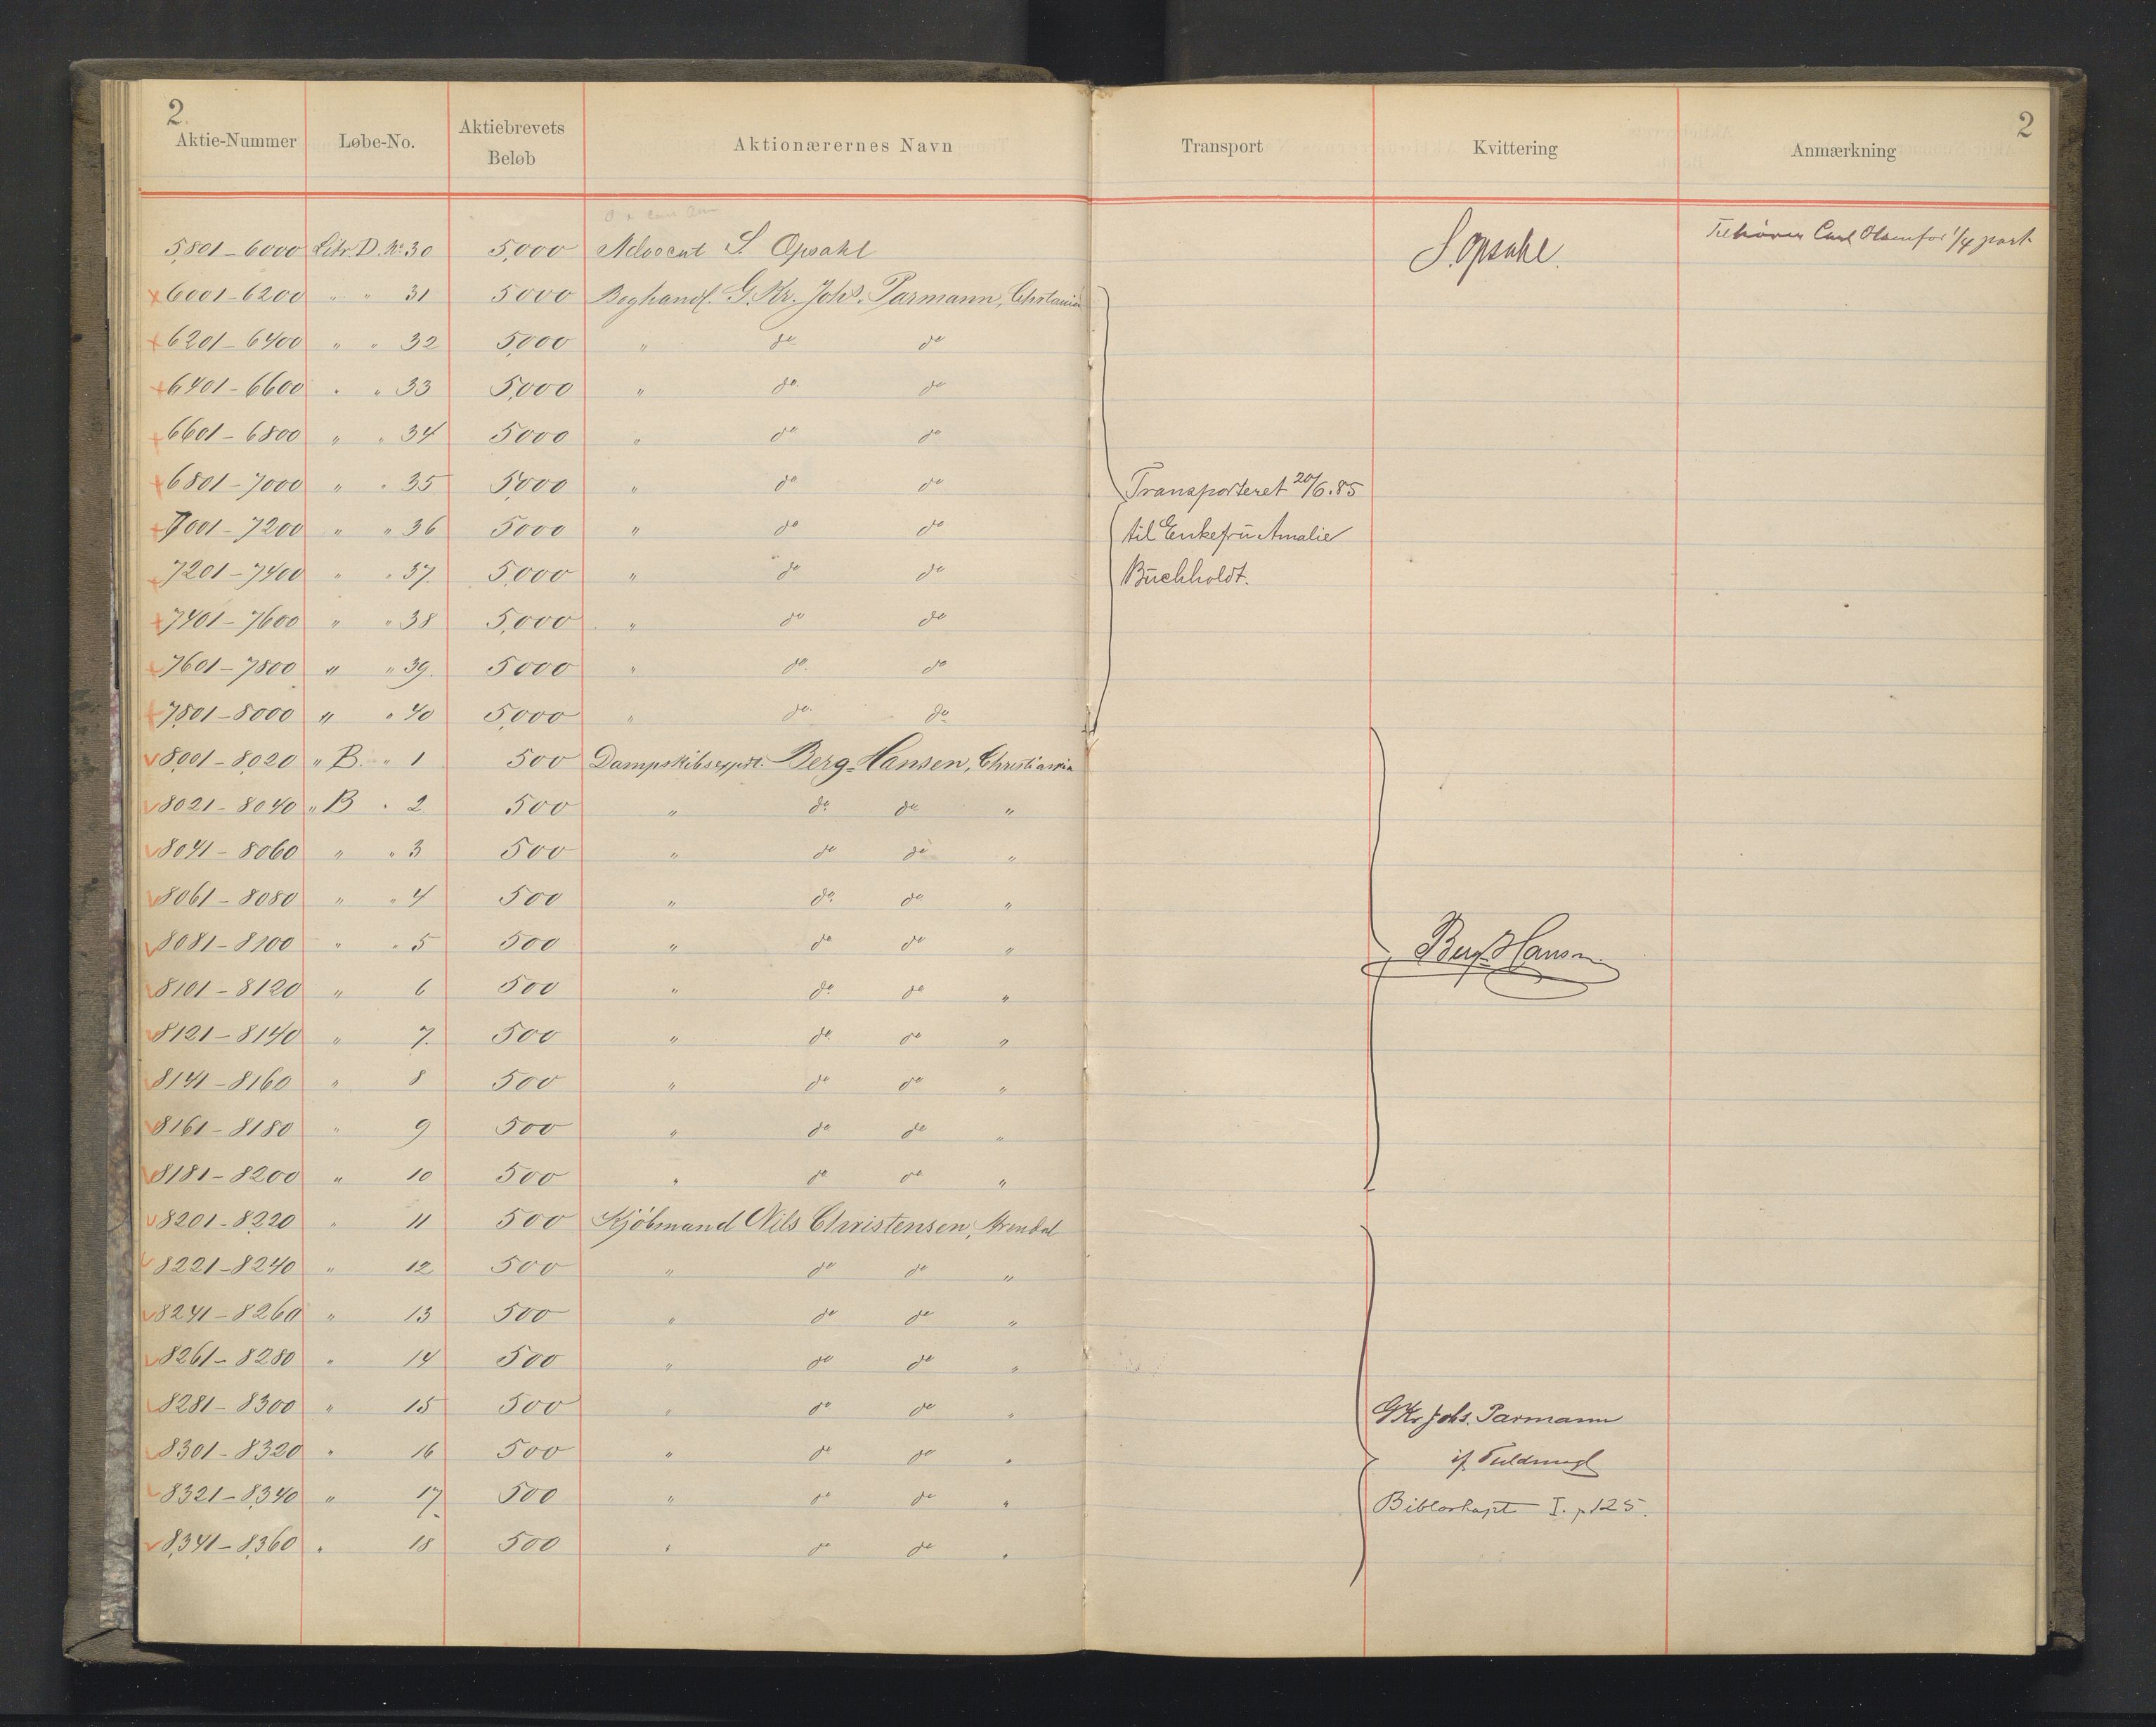 2.
2
Aktie-Nummer Løbe-No. Aktiebrevets Beløb Aktionærernes Navn Transport Kvittering Anmærkning
5,801-6000 Litr. D. No 30 5,000 Advocat S. Opsahl S. Opsahl. Tilhører Carl Olsen for 1/4 part
6001-6200 " " 31 5000 Boghandl. G. Kr. Johs. Parmann, Chrstania
6201-6400 " " 32 5,000 " do do
6401-6600 " " 33 5,000 " do do
6601-6800 " " 34 5000 " do do
6801-7000 " " 35 5,000 " do do Transporteret 20/6.85
7001-7200 " " 36 5000 " do do til Enkefru Amalie
7201-7400 " " 37 5,000 " do do Buchholdt.
7401-7600 " " 38 5,000 " do do
7601-7800 " " 39. 5000 " do do
7801-8000 " " 40 5,000 " do do
8001-8020 " B. " 1 500 Dampskibsexpdt. Berg-Hansen, Christiania
8021-8040 " B " 2 500 " do do "
8041-8060 " " 3 500 " do do "
8061-8080 " " 4 500 " do do "
8081-8100 " " 5 500 " do do " Berg Hansen
8101-8120 " 6 500 " do do "
8121-8140 " 7. 500 " do do "
8141-8160 " 8 500 " do do "
8161-8180 " 9 500 " do do "
8181-8200 " 10 500 " do do "
8201-8220 " 11 500 Kjöbmand Nils Christensen, Arendal
8221-8240 " 12 500 " do do "
8241-8260 " 13 500 " do do "
8261-8280 " 14 500 " do do "
8281-8300 " 15 500 " do do " G Kr Johs. Parmann
8301-8320 " 16 500 " do do " if. Fuldmagt
8321-8340 " 17 500 " do do " Biblorhapt I. p 125.
8,341-8,360 " 18 500 " do do "